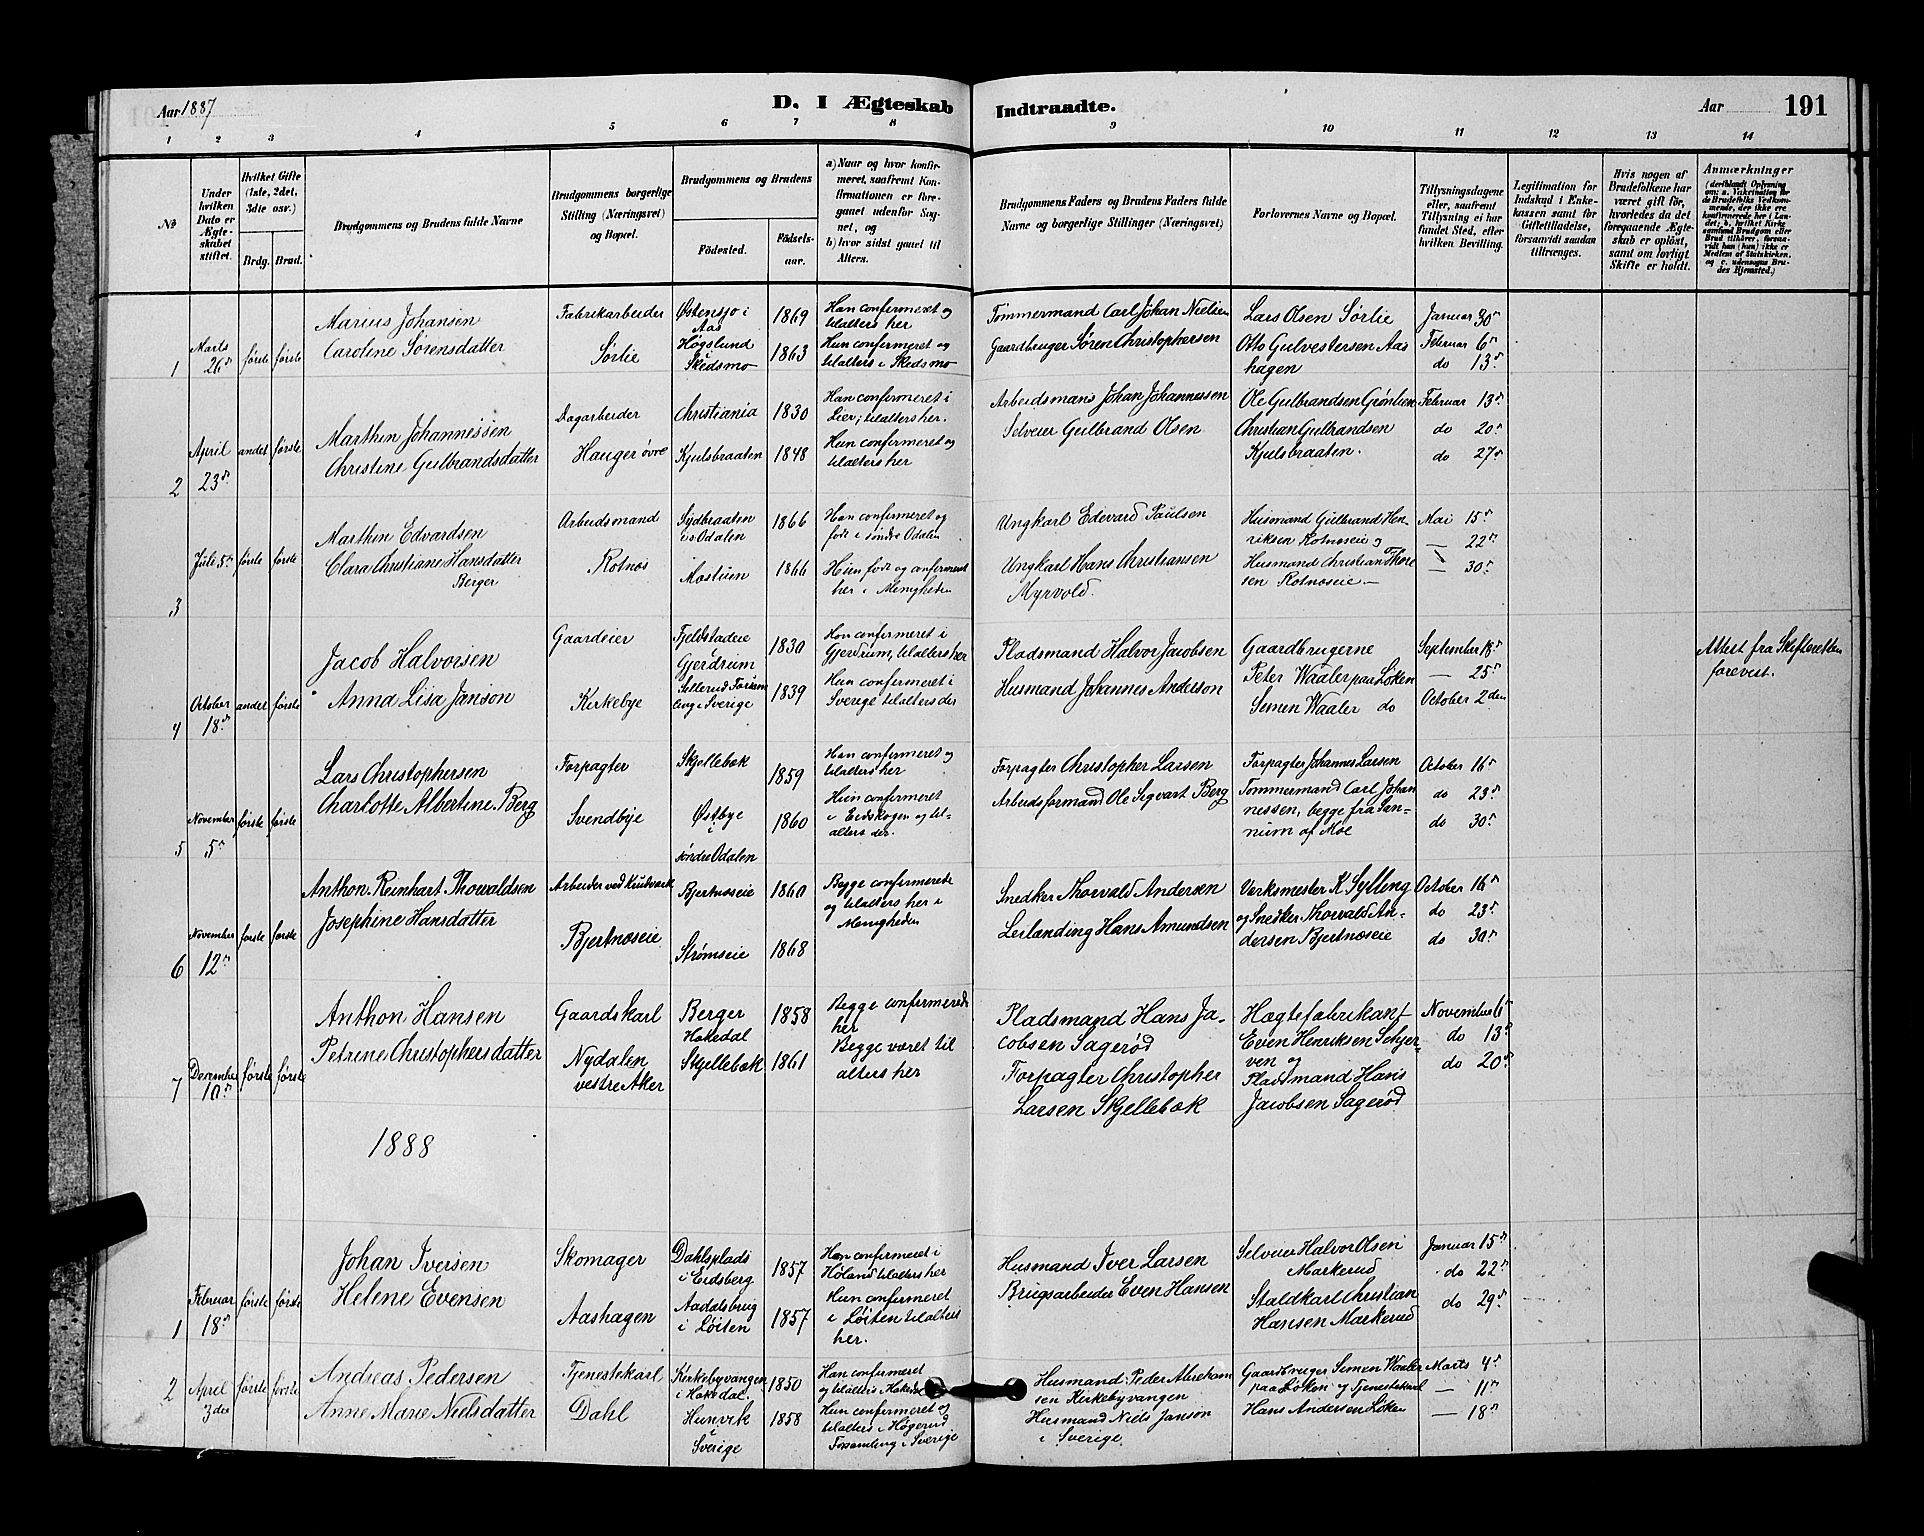 Aar 1887
D. I Ægteskab Indtraadte.
Aar 191
1 2 3 4 5 6 7 8 9 10 11 12 13 14
No
Under hvilken Dato er Ægteskabet stiftet.
Hvilket Gifte (1ste, 2det, 3dte osv.)
Brdg. Brud.
Brudgommens og Brudens fulde Navne
Brudgommens borgerlige Stilling (Næringsvei) og Bopæl.
Brudgommens og Brudens
Födested. Födselsaar.
a) Naar og hvor konfirmeret, saafremt Konfirmationen er foregaaet udenfor Sognet, og
b) hvor sidst gaaet til Alters.
Brudgommens Faders og Brudens Faders fulde Navne og borgerlige Stillinger (Næringsvei)
Forlovernes Navne og Bopæl.
Tillysningsdagene eller, saafremt Tillysning ei har fundet Sted, efter hvilken Bevilling.
Legitimation for Indskud i Enkekassen samt for Giftetilladelse, forsaavidt saadan tiltrænges.
Hvis nogen af Brudefolkene har været gift før, hvorledes da det foregaaende Ægteskab er oplöst, samt om lovligt Skifte er holdt.
Anmærkninger
(deriblandt Oplysning om: a. Vakcination for de Brudefolks Vedkommende, der ikke ere konfirmerede her i Landet; b. hvilket Kirkesamfund Brudgom eller Brud tilhörer, forsaavidt han (hun) ikke er Medlem af Statskirken, og c. udensogns Brudes Hjemsted.)
1
Marts 26de
første første
Marius Johansen
Caroline Sörensdatter
Fabrikarbeider
Sørlie
Østensjo i Aas 1869
Høgslund i Skedsmo 1863
Han confirmeret og
tilalters her
Hun confirmeret og
tilalters i Skedsmo
Tømmermand Carl Johan Nielsen
Gaardbruger Sören Christophersen
Lars Olsen Sørlie
Otto Gulvestersen Aas
hagen
Januar 30
Februar 6
do 13
2
April 23
andet første
Marthin Johannissen
Christine Gulbrandsdatter
Dagarbeider
Hauger øvre
Christiania 1830
Kjulsbraaten 1848
Han confirmeret i
Lier; tilalters her.
Hun confirmeret og
tilalters her
Arbeidsmans Johan Johannessen
Selveier Gulbrand Olsen
Ole Gulbrandsen Grønlien
Christian Gulbrandsen
Kjulsbraaten.
Februar 13
do 20
do 27
3
Juli 5
første første
Marthin Edvardsen
Clara Christiane Hansdatter
Berger
Arbeidsmand
Rotnæs
Sydbraaten
i s Odalen 1866
Aastuen 1866
Han confirmeret og
født i søndre Odalen
Hun født og confirmeret
her i Menigheden
Ungkarl Edevard Paulsen
Ungkarl Hans Christiansen
Myrvold.
Husmand Gulbrand Hen-
riksen Rotnæseie og
Husmand Christian Thore
sen Rotnæseie –
Mai 15
— 22
— 30
4
October 18
andet første
Jacob Halvorsen
Anna Lisa Janson
Gaardeier
Kirkebye
Fjeldstadeie
i Gjerdrum 1830
Sillerud Forsam
ling i Sverige 1839
Han confirmeret i
Gjerdrum, tilalters her
Hun confirmeret i
Sverige tilalters der
Pladsmand Halvor Jacobsen
Husmand Johannes Anderson
Gaardbrugerne
Peter Waaler paa Løken
Semen Waaler do
September 18
— 25
October 2den
Attest fra Skifteretten
forevist.
5
November 5
første første
Lars Christophersen
Charlotte Albertine Berg
Forpagter
Svendbye
Skjellebæk 1859
Østbye i 1860
søndre Odalen
Han confirmeret og
tilalters her
Hun confirmeret
i Eidskogen og til-
alters der.
Forpagter Christopher Larsen
Arbeidsformand Ole Sigvart Berg
Forpagter Johannes Larsen
Tømmermand Carl Johan
nessen, begge fra San-
num af Moe
October 16
do 23
do 30
6
November 12
første første
Anthon Reinhart Thorvaldsen
Josephine Hansdatter
Arbeider ved Krudtværk
Bjertnæseie
Bjertnæseie 1860
Strømseie 1868
Begge confirmerede
og tilalters her i
Menigheden
Snedker Thorvald Andersen
Leilænding Hans Amundsen
Værksmester K Sylling
og Snedker Thorvald An-
dersen Bjertnæseie
October 16
do 23
do 30
7
December 10
første første
Anthon Hansen
Petrine Christophersdatter
Gaardskarl
Nydalen
vestre Aker
Berger
Hakedal 1858
Skjellebæk 1861
Begge confirmerede
her
Begge været til
alters her
Pladsmand Hans Ja-
cobsen Sagerød
Forpagter Christopher
Larsen Skjellebæk
Hægtefabrikant
Even Henriksen Schjer-
ven og
Pladsmand Hans
Jacobsen Sagerød
November 6
do 13
do 20
1888
1
Februar 18
første første
Johan Iversen
Helene Evensen
Skomager
Aashagen
Dahlsplads
i Eidsberg 1857
Aadalsbrug
i Løiten 1857
Han confirmeret i
Høland tilalters her
Hun confirmeret
i Løiten tilalters
her.
Husmand Iver Larsen
Brugsarbeider Even Hansen
Selveier Halvor Olsen
Markerud
Staldkarl Christian
Hansen Markerud
Januar 15
do 22
do 29
2
April 3die
første første
Andreas Pedersen
Anne Marie Nielsdatter
Tjenestekarl
Dahl
Kirkebyvangen
i Hakedal 1850
Hunvik 1858
i Sverige
Han confirmeret
og tilalters i Hakedal
Hun confirmeret og
tilalters i Högerud
Forsamling i Sverige
Husmand Peder Abraham
sen Kirkebyvangen
Husmand Niels Janson
i Sverige
Gaardbruger Simen Waaler
paa Løken og Tjenestekarl
Hans Andersen Løken
Marts 4
— 11
— 18